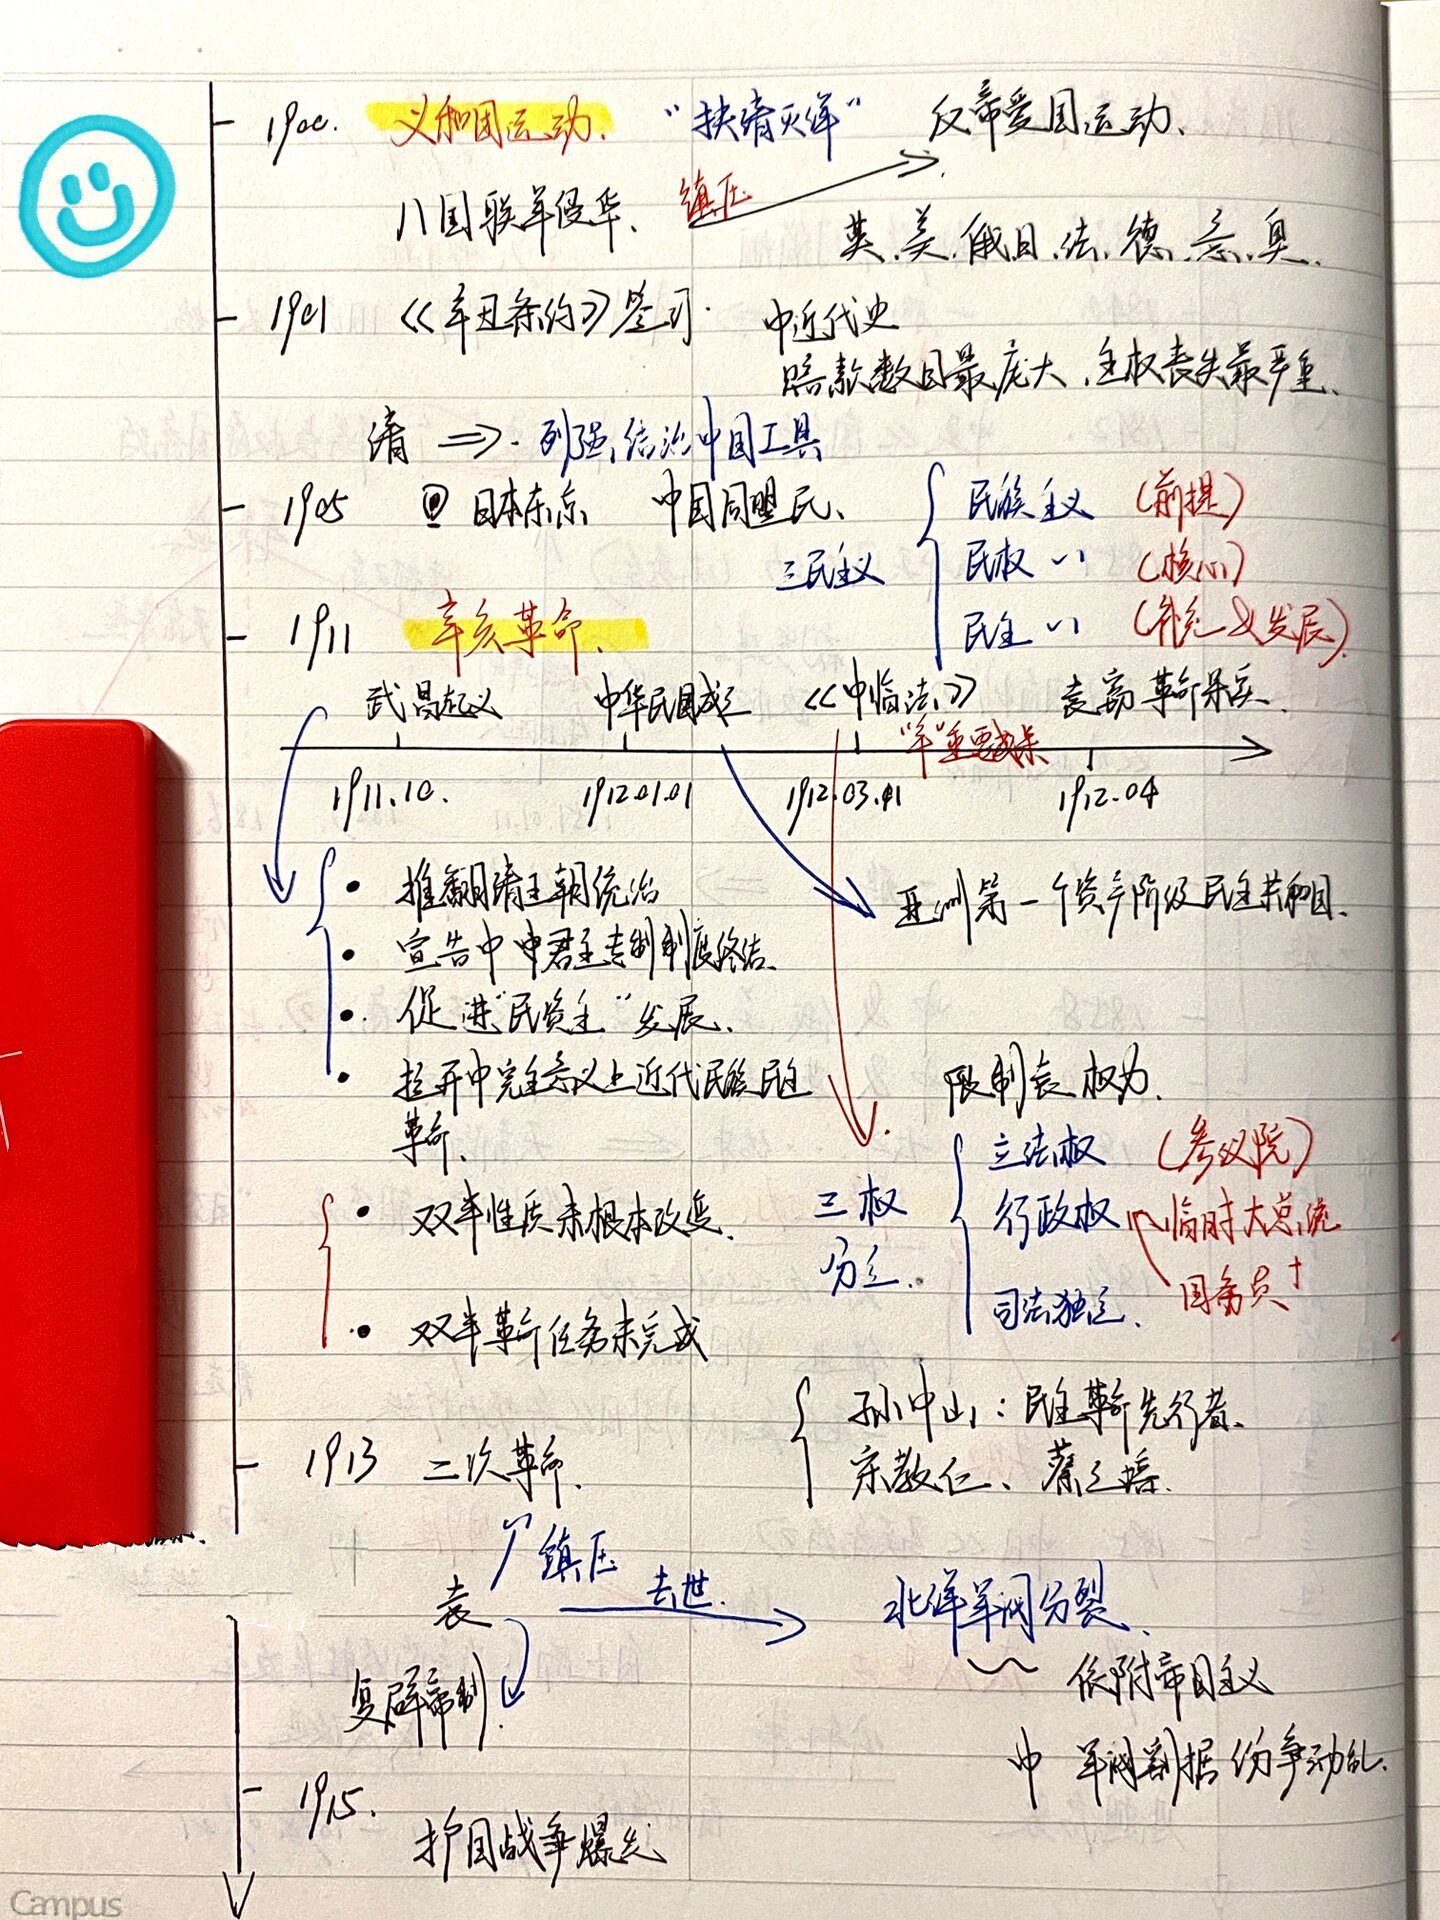 1900. 义和团运动. “扶清灭洋” 反帝爱国运动、
八国联军侵华、 镇压
英、美、俄、日、法、德、意、奥、
1901 《辛丑条约》签订. 中近代史
赔款数目最庞大、主权丧失最严重、
清 ⇒ 列强统治中国工具
1905 @日本东京 中国同盟民、
三民主义
民族主义 (前提)
民权 〃 (核心)
民主 〃 (补充&发展)
1911 辛亥革命、
武昌起义 中华民国成立 《中临法》 袁窃革命果实、
“辛”重要成果
1911.10. 1912.01.01 1912.03.11 1912.04
• 推翻清王朝统治
亚洲第一个资产阶级民主共和国、
• 宣告中 中君主专制制度终结、
• 促进“民资主”发展、
• 拉开中完全意义上近代民族民主
革命、
限制袁权力、
• 双半性质未根本改变、
三权
分立、
立法权 (参议院)
行政权 临时大总统
国务员
司法独立、
• 双半革命任务未完成
孙中山：民主革命先行者、
宋教仁、
1913 二次革命、
镇压
袁 去世、 北洋军阀分裂、
复辟帝制、
依附帝国主义
中 军阀割据 纷争动乱、
1915.
护国战争爆发
Campus